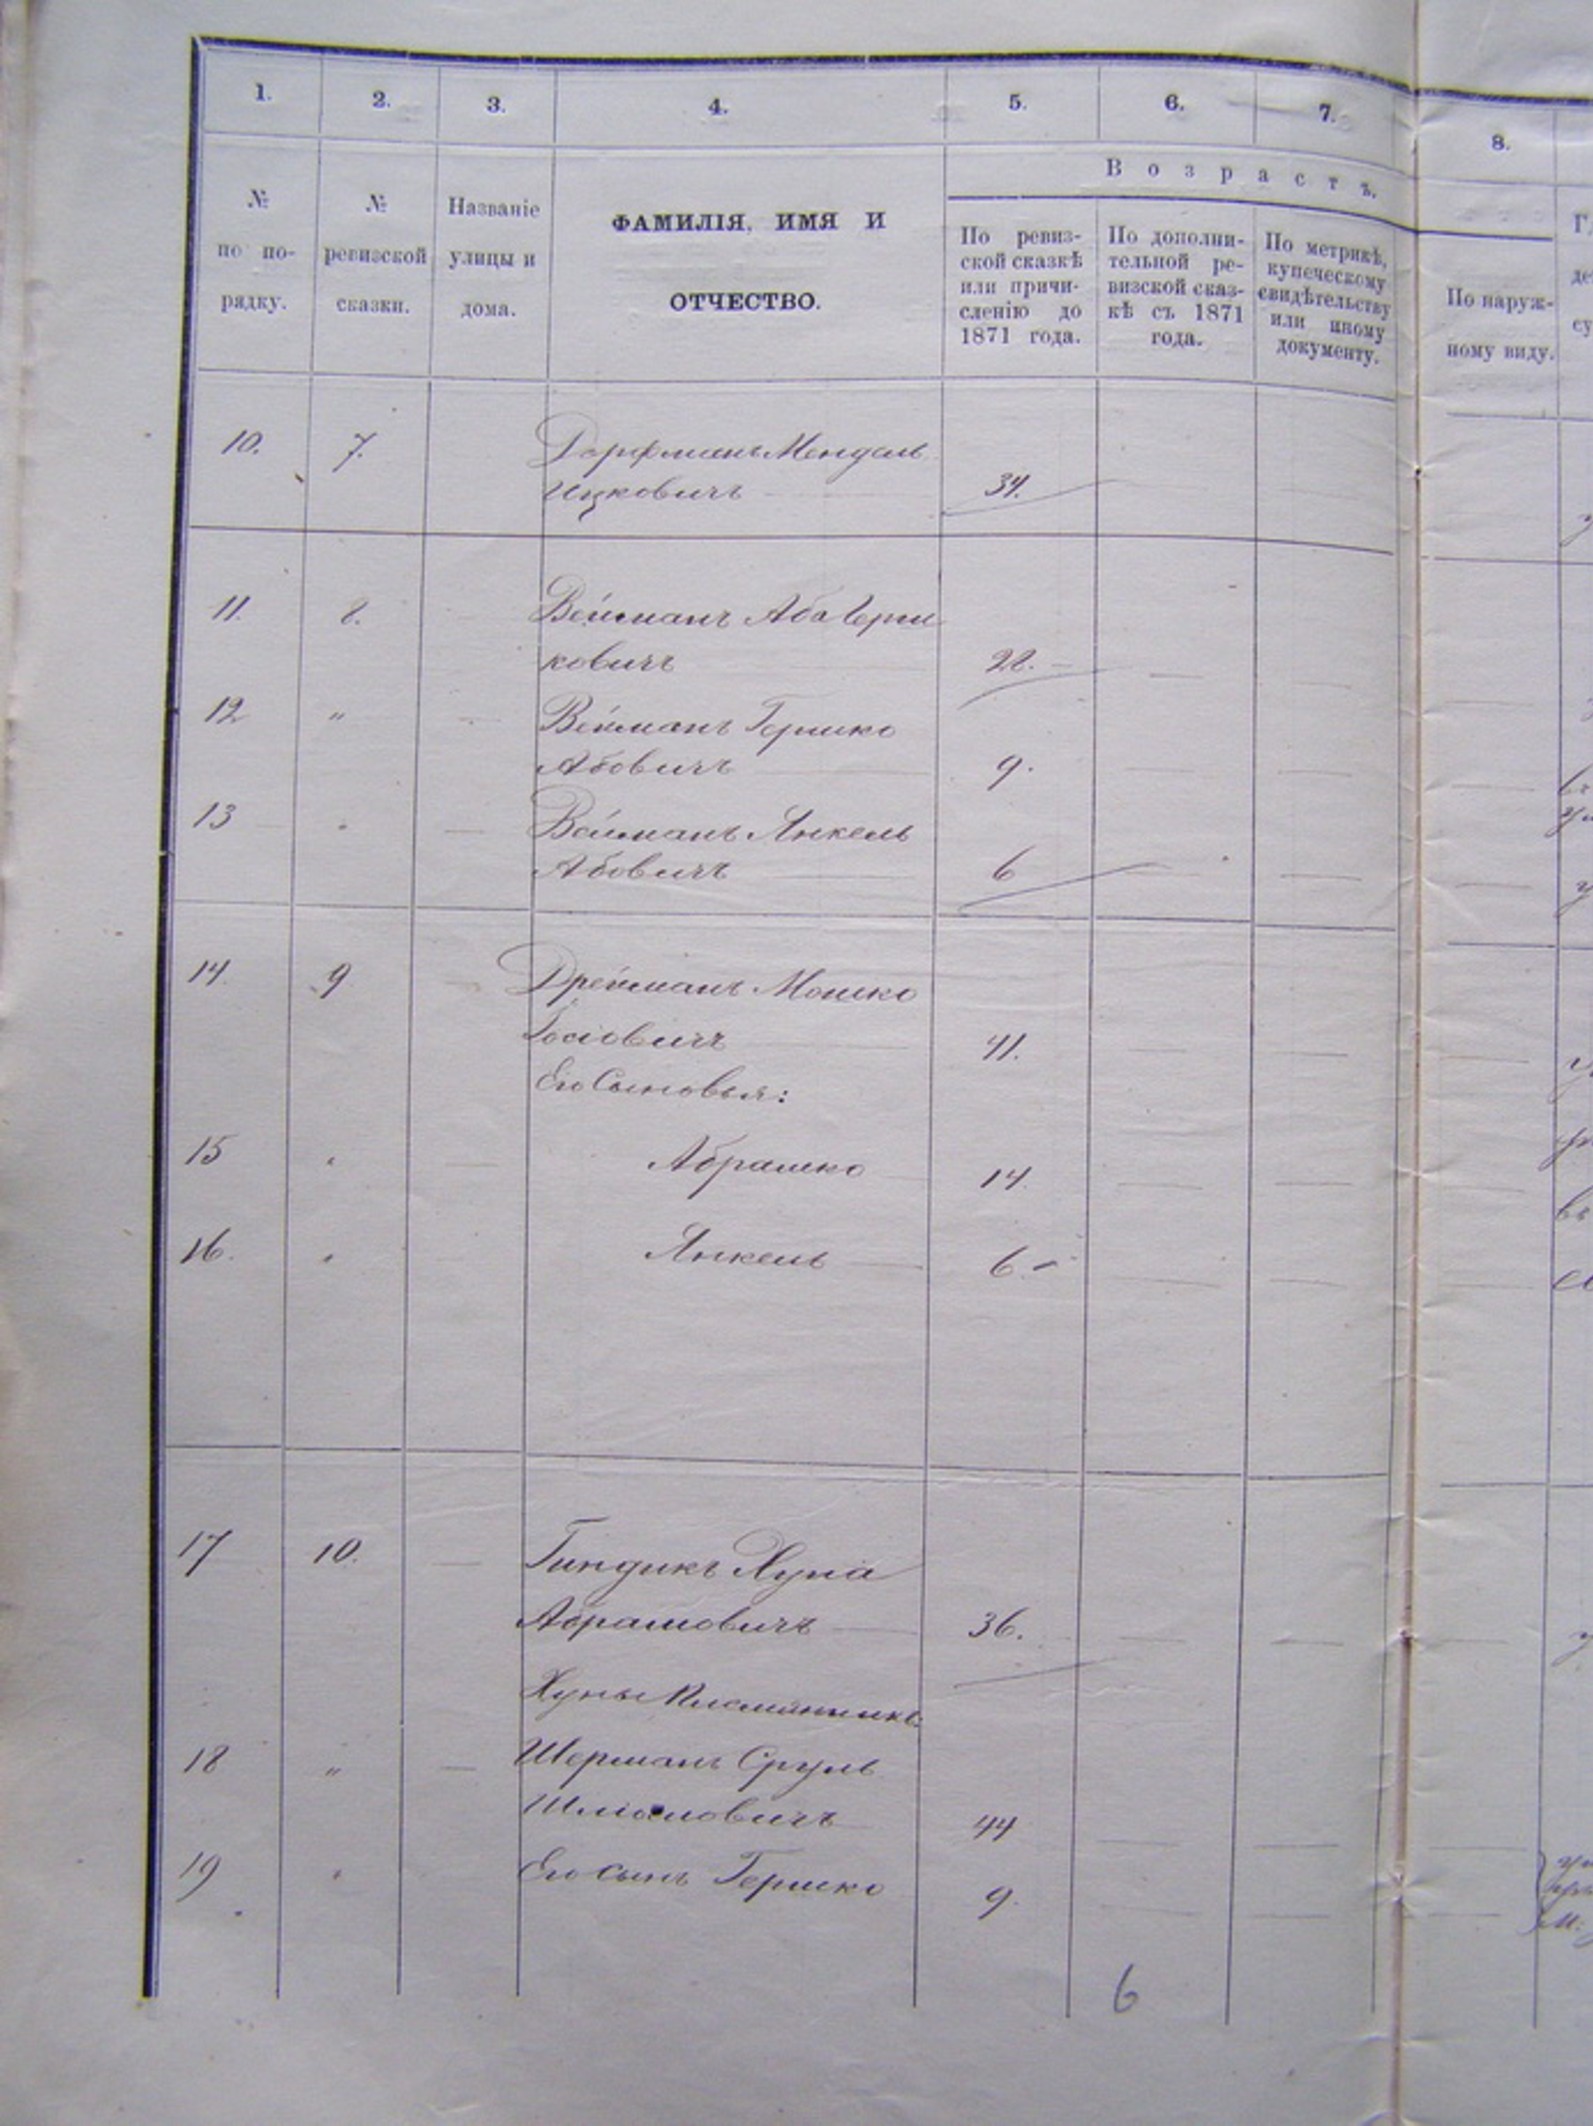 1. 2. 3. 4. 5. 6. 7. 8.
Возрастъ.
№ по по-
рядку.
№
ревизской
сказки.
Названіе
улицы и
дома.
ФАМИЛІЯ, ИМЯ И
ОТЧЕСТВО.
По ревиз-
ской сказкѣ
или причи-
сленію до
1871 года.
По дополни-
тельной ре-
визской сказ-
кѣ съ 1871
года.
По метрикѣ,
купеческому
свидѣтельству
или иному
документу.
По наруж-
ному виду.
10. 7. Дорфманъ Мендель
Ицковичъ 34.
11. 8. Вейманъ Аба Герш
ковичъ 28.
12 " Вейманъ Гершко
Абовичъ 9.
13 " Вейманъ Янкель
Абовичъ 6
14. 9 Дрейманъ Мошко
Іосіовичъ 41.
Его Сыновья:
15 " Абрашко 14
16. " Янкель 6
17 10. Гиндикъ Хуна
Абрамовичъ 36.
Хуны Племянникъ:
18 " Шерманъ Сруль
Шліомовичъ 44
19 " Его сынъ Гершко 9.
6